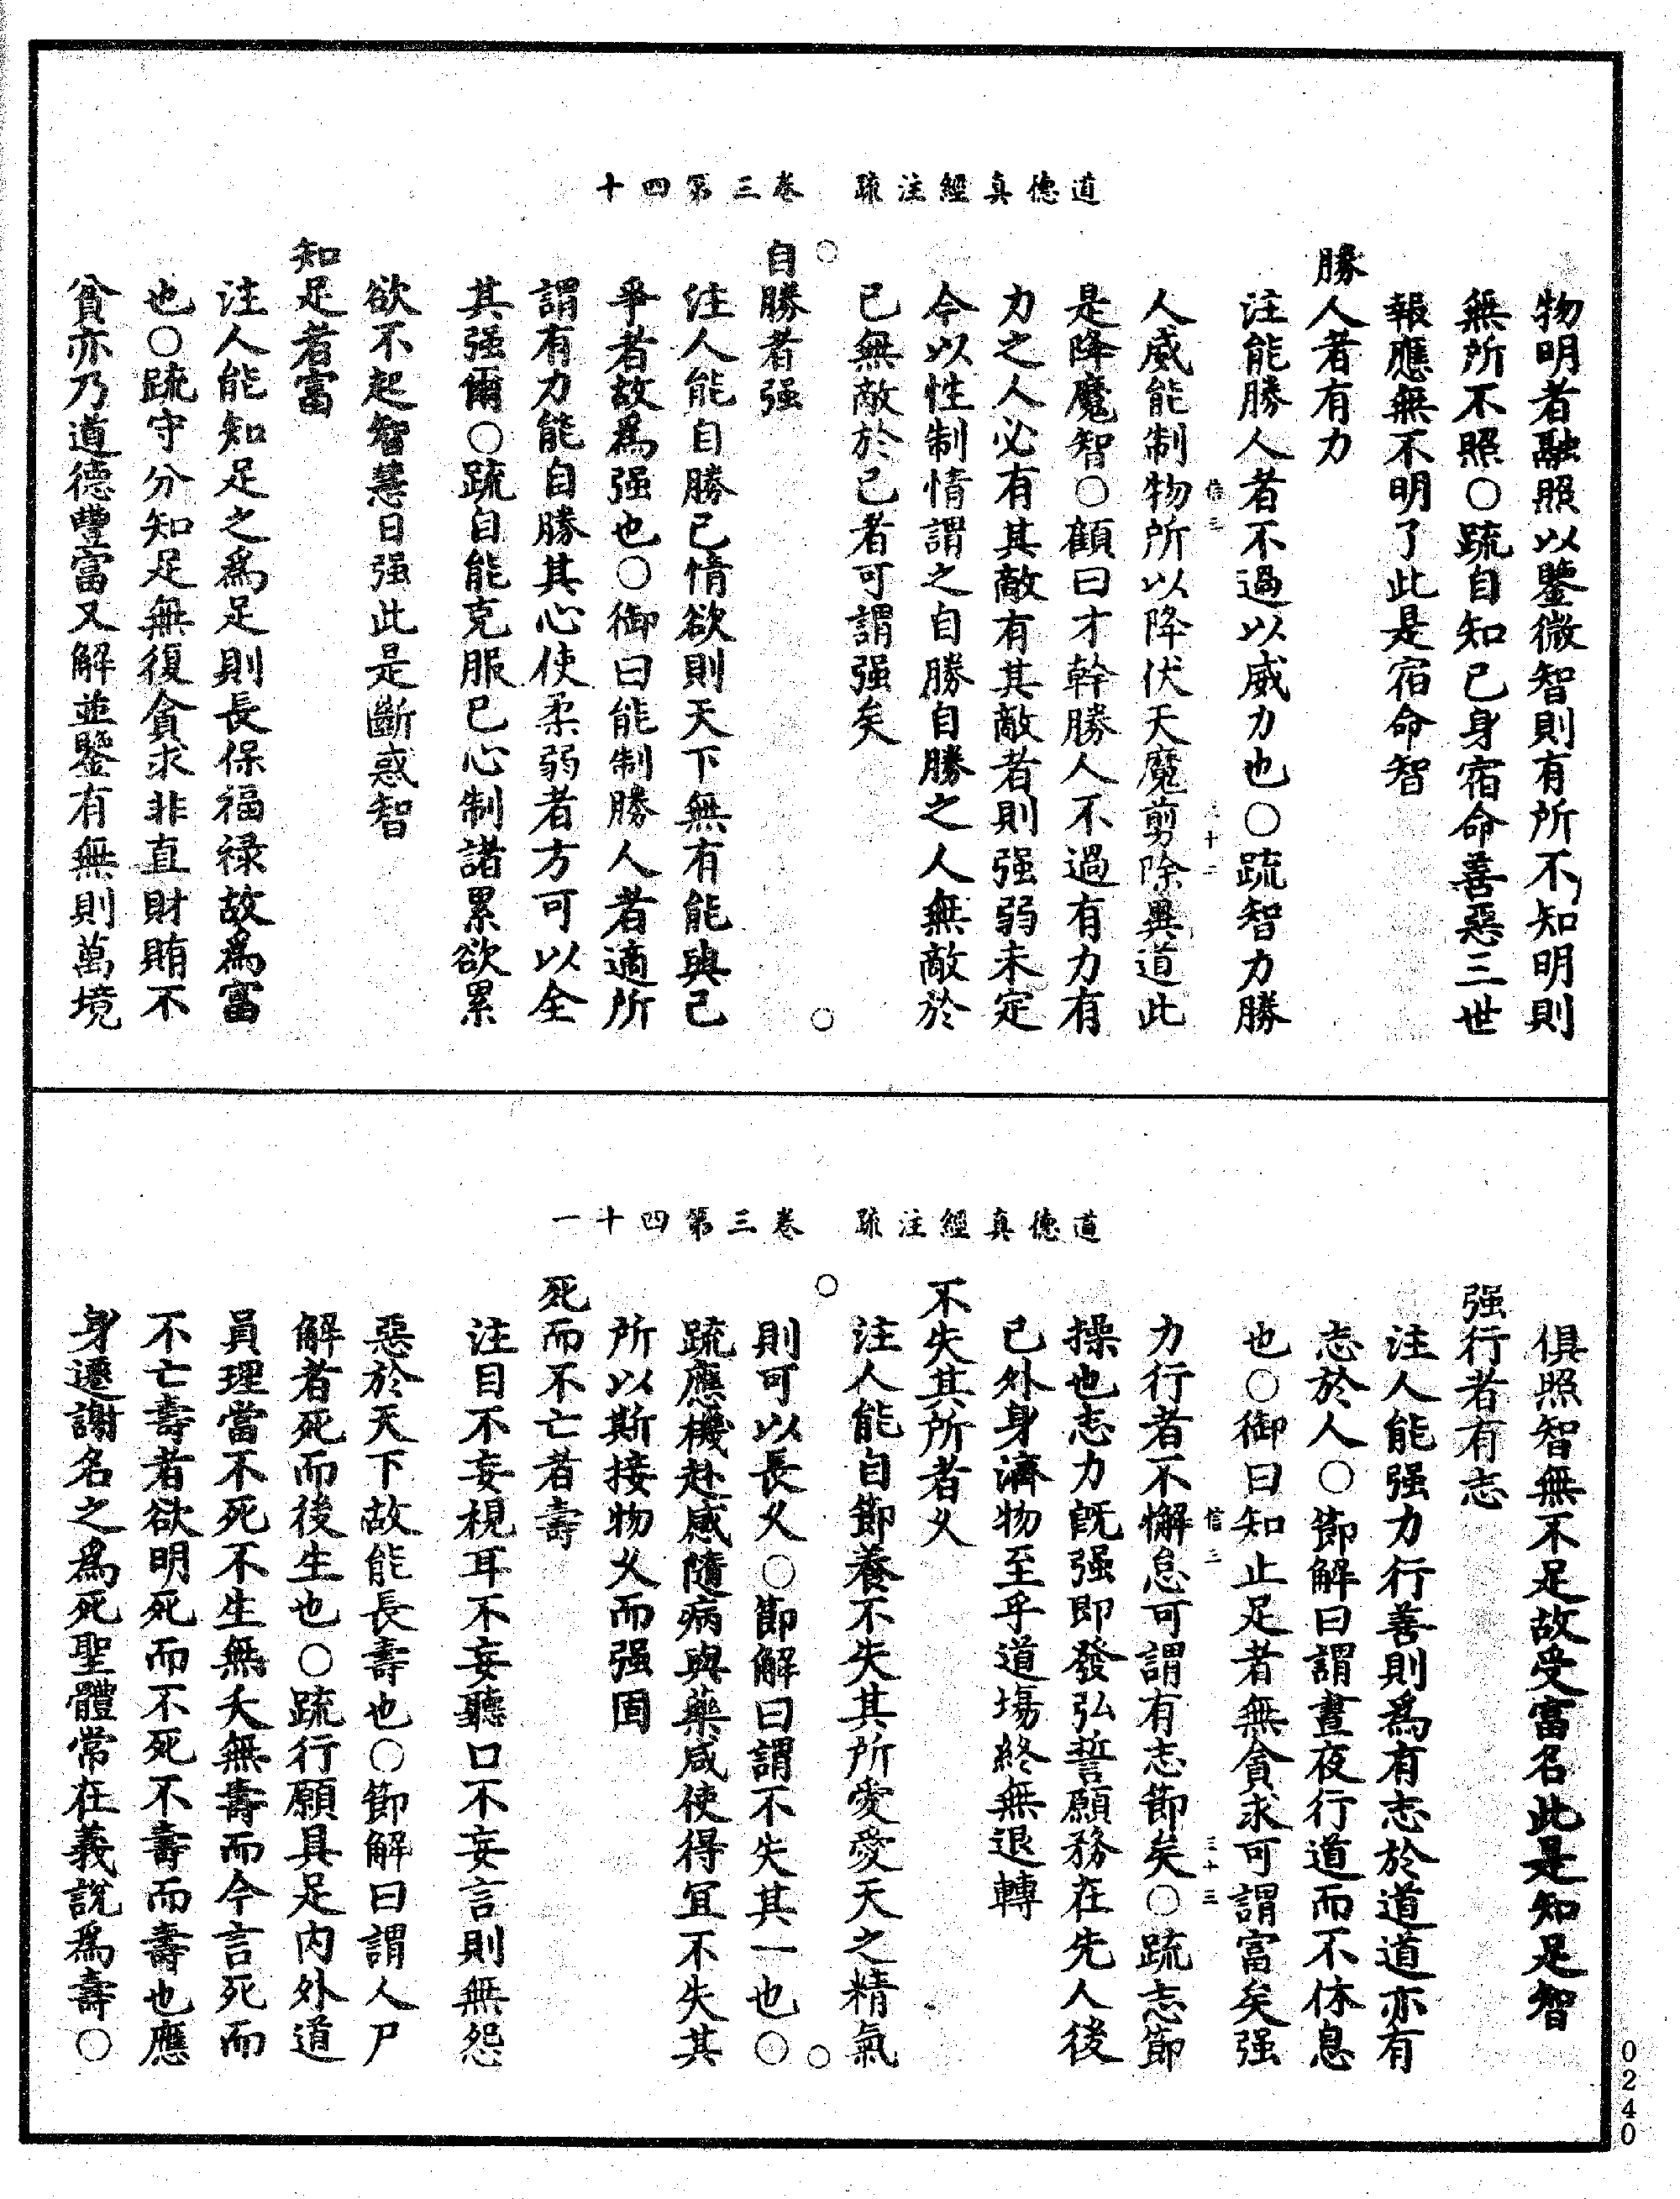 道德真經注疏　卷三第四十
物明者融照以鑒微智則有所不知明則
無所不照○疏自知己身宿命善惡三世
報應無不明了此是宿命智
勝人者有力
注能勝人者不過以威力也○疏智力勝
信三
人威能制物所以降伏天魔剪除異道此
是降魔智○顧曰才幹勝人不過有力有
力之人必有其敵有其敵者則强弱未定
今以性制情謂之自勝自勝之人無敵於
己無敵於己者可謂强矣
自勝者强
注人能自勝己情欲則天下無有能與己
爭者故為强也○御曰能制勝人者適所
謂有力能自勝其心使柔弱者方可以全
其强爾○疏自能克服己心制諸累欲累
欲不起智慧日强此是斷惑智
知足者富
注人能知足之為足則長保福祿故為富
也○疏守分知足無復貪求非直財賄不
貧亦乃道德豐富又解並鑒有無則萬境
道德真經注疏　卷三第四十一
俱照智無不足故受富名此是知足智
强行者有志
注人能强力行善則為有志於道道亦有
志於人○節解曰謂晝夜行道而不休息
也○御曰知止足者無貪求可謂富矣强
信三　三十三
力行者不懈怠可謂有志節矣○疏志節
操也志力既强即發弘誓願務在先人後
己外身濟物至乎道場終無退轉
不失其所者乆
注人能自節養不失其所愛愛天之精氣
則可以長乆○節解曰謂不失其一也○
疏應機赴感隨病與藥咸使得宜不失其
所以斯接物乆而强固
死而不亡者壽
注目不妄視耳不妄聽口不妄言則無怨
惡於天下故能長壽也○節解曰謂人尸
解者死而後生也○疏行願具足內外道
員理當不死不生無夭無壽而今言死而
不亡壽者欲明死而不死不壽而壽也應
身遷謝名之為死聖體常在義說為壽○
0240